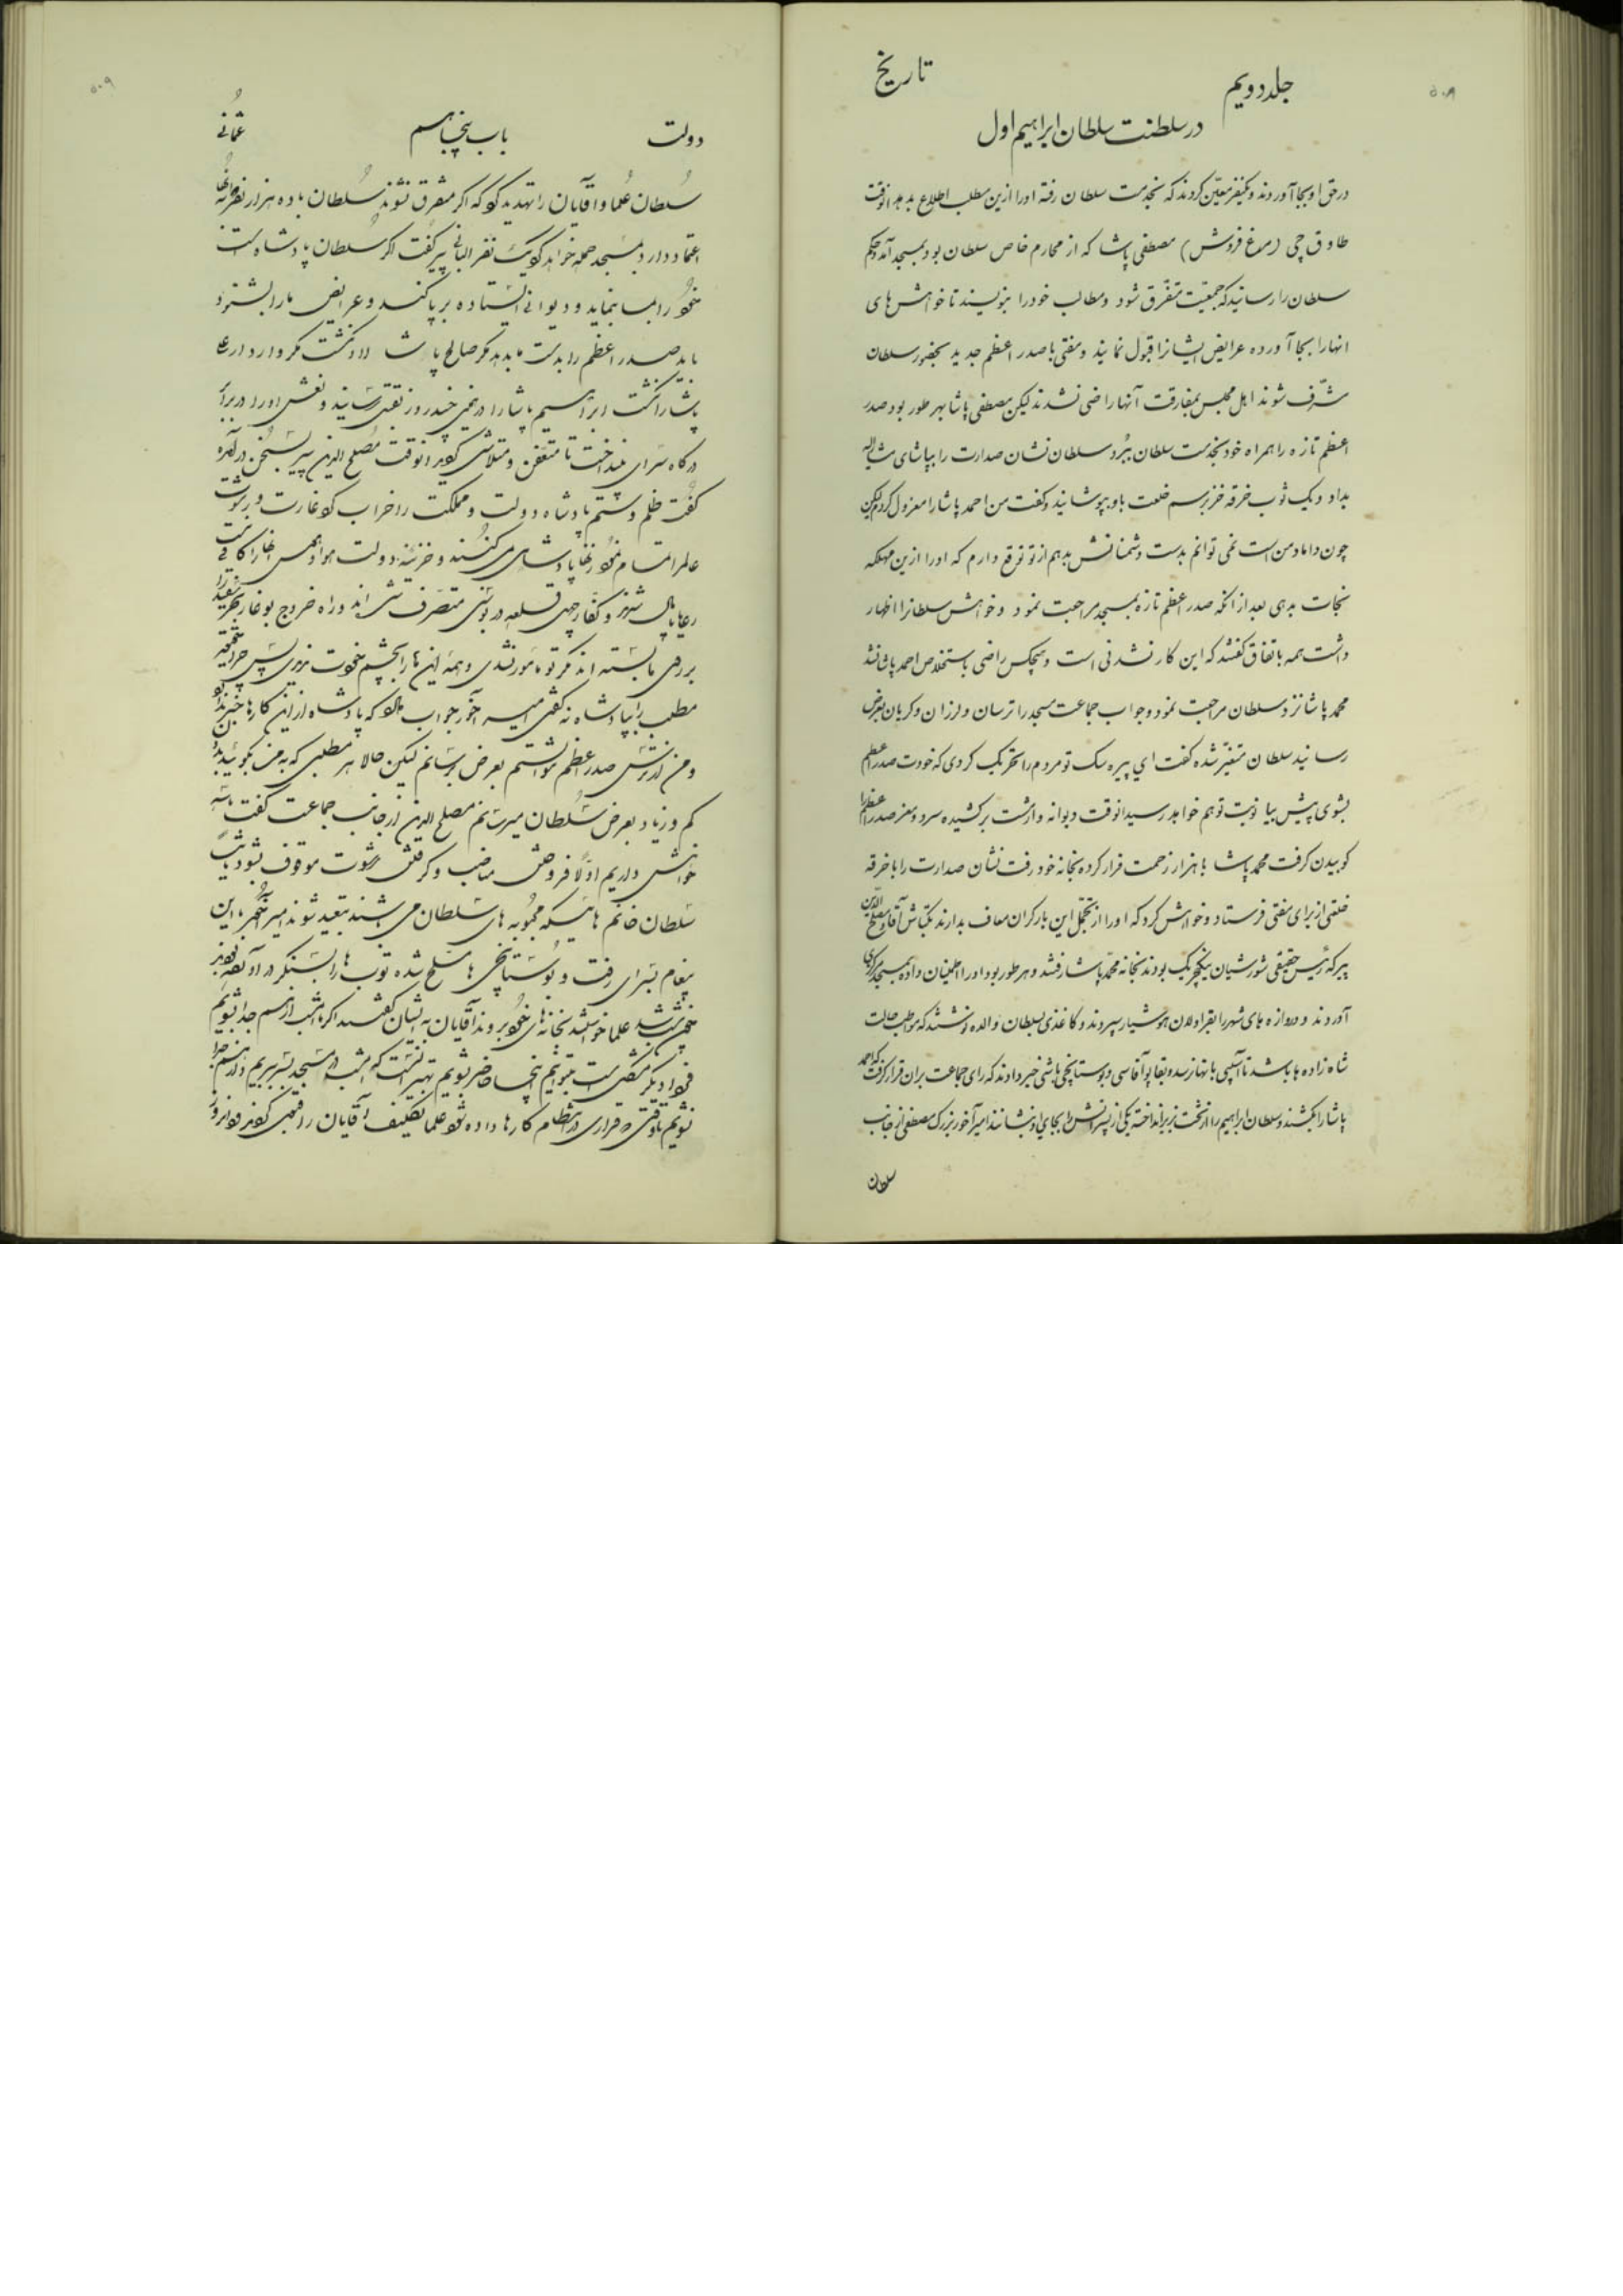 ۵۰۸
جلد دویم
تاریخ
در سلطنت سلطان ابراهیم اول
در حق او بجا آوردند و یکنفر معیّن کردند که بخدمت سلطان رفته اورا ازین مطلب اطلاع بدهد انوقت
طاوق چی (مرغ فروش) مصطفی پاشا که از محارم خاص سلطان بود بمسجد آمد و حکم
سلطان را رسانید که جمعیّت متفّرق شود و مطالب خودرا بنویسند تا خواهش های
انهارا بجا آورده عرایض ایشانرا قبول نمایند و مفتی با صدر اعظم جدید بحضور سلطان
مشرّف شوند اهل مجلس بمفارقت آنها راضی نشدند لیکن مصطفی پاشا بهر طور بود صدر
اعظم تازه را همراه خود بخدمت سلطان ببُرد سلطان نشان صدارت را بپاشای مشارالیه
بداد و یک ثوب خرقه خز برسم خلعت باو بپوشانید و گفت من احمد پاشا را معزول کردم لیکن
چون داماد من است نمی توانم بدست دشمنانش بدهم از تو توقع دارم که اورا ازین مهلکه
نجات بدهی بعد از انکه صدر اعظم تازه بمسجد مراجعت نمود و خواهش سلطانرا اظهار
داشت همه باتفاق گفتند که این کار نشدنی است و هیچکس راضی باستخلاص احمد پاشا نشد
محمد پاشا نزد سلطان مراجعت نمود و جواب جماعت مسجد را ترسان و لرزان و گریان بعرض
رسانید سلطان متغیّر شده گفت ای پیره سک تو مردم را تحریک کردی که خودت صدر اعظم
بشوی پیش بیا نوبت تو هم خواهد رسید انوقت دیوانه وار مشت بر کشیده سر و مغز صدر اعظم را
کوبیدن گرفت محمد پاشا با هزار زحمت فرار کرده بخانه خود رفت نشان صدارت را با خرقه
خلعتی از برای مفتی فرستاد و خواهش کرد که اورا از تحمّل این بار گران معاف بدارند بکتاش آقا و مصلح الدّین
پیر که رئیس حقیقی شورشیان ینکچریک بودند بخانه محمّد پاشا رفتند و هر طور بود اورا اطمینان داده بمسجد مرکزی
آوردند و دروازه های شهر را بقراولان هوشیار سپردند و کاغذی بسلطان والده نوشتند که مواظب حالت
شاه زاده ها باشد تا آسیبی بانها نرسد و بقاپو آقاسی و بوستانچی باشی خبر دادند که رای جماعت بران قرار گرفت که احمد
پاشا را بکشند و سلطان ابراهیم را از تخت بزیر انداخته یکی از پسرانش را بجای او بنشانند امیر آخور بزرک مصطفی از جانب
سلطان
۵۰۹
دولت
باب پنجاهم
عثمانی
سُلطان عُلما و آقایان را تهدید کرد که اگر متفرق نشوند سُلطان با ده هزار نفر که بانها
اعتماد دارد بمسجد حمله خواهد کرد یک نفر البانی پیر گفت اگر سُلطان پادشاه است
خود را بما بنماید و دیوانی ایستاده بر پا کند و عرایض ما را بشنود
باید صدر اعظم را بدست ما بدهد مگر صالح پاشا را نکشت مگر واردار علی
پاشا را نکشت ابراهیم پاشا را در نمی چند روز بقتل رسانید و نعش او را در برابر
درگاه سرای بینداخت تا متعفن و متلاشی گردید انوقت مُصلح الدین پیر بسخن درآمده
گفت ظلم و ستم پادشاه دولت و مملکت را خراب کرد غارت و رشوت
عالم را تمام نمود زنها پادشاهی می کنند و خزینه دولت هوا و هوس انها را کافی نیست
رعایا پامال شدند و کفار چهل قلعه در بوسنی متصرف شده اند و راه خروج بوغاز بحر سفید را
بروی ما بسته اند مگر تو مامور نشدی و همه این ها را بچشم خودت ندیدی پس چرا حقیقت
مطلب را بپادشاه نگفتی امیر آخور جواب داد که پادشاه از این کارها خبر ندارد
و من از ترس صدر اعظم نتوانستم بعرض برسانم لیکن حالا هر مطلبی که به من بگوئید بدون
کم و زیاد بعرض سُلطان میرسانم مصلح الدین از جانب جماعت گفت ما سه
خواهش داریم اوّلاً فروختن مناصب و گرفتن رشوت موقوف بشود ثانیاً
سُلطان خانم هائیکه محبُوبه های سُلطان می باشند تبعید شوند امیر آخور با این
پیغام بسرای رفت و بوستانچی ها مسلح شده توب ها را بسنگر در آوردند
علما خواستند بخانه های خود بروند آقایان به ایشان گفتند اگر ما امشب از هم جدا بشویم
فردا دیگر مشکل است بتوانیم اینجا حاضر بشویم بهتر آنست که امشب در مسجد بسر ببریم و از هم جدا
نشویم تا وقتی که قراری در انتظام کارها داده شود علما تکلیف آقایان را قبول کردند فردا روز